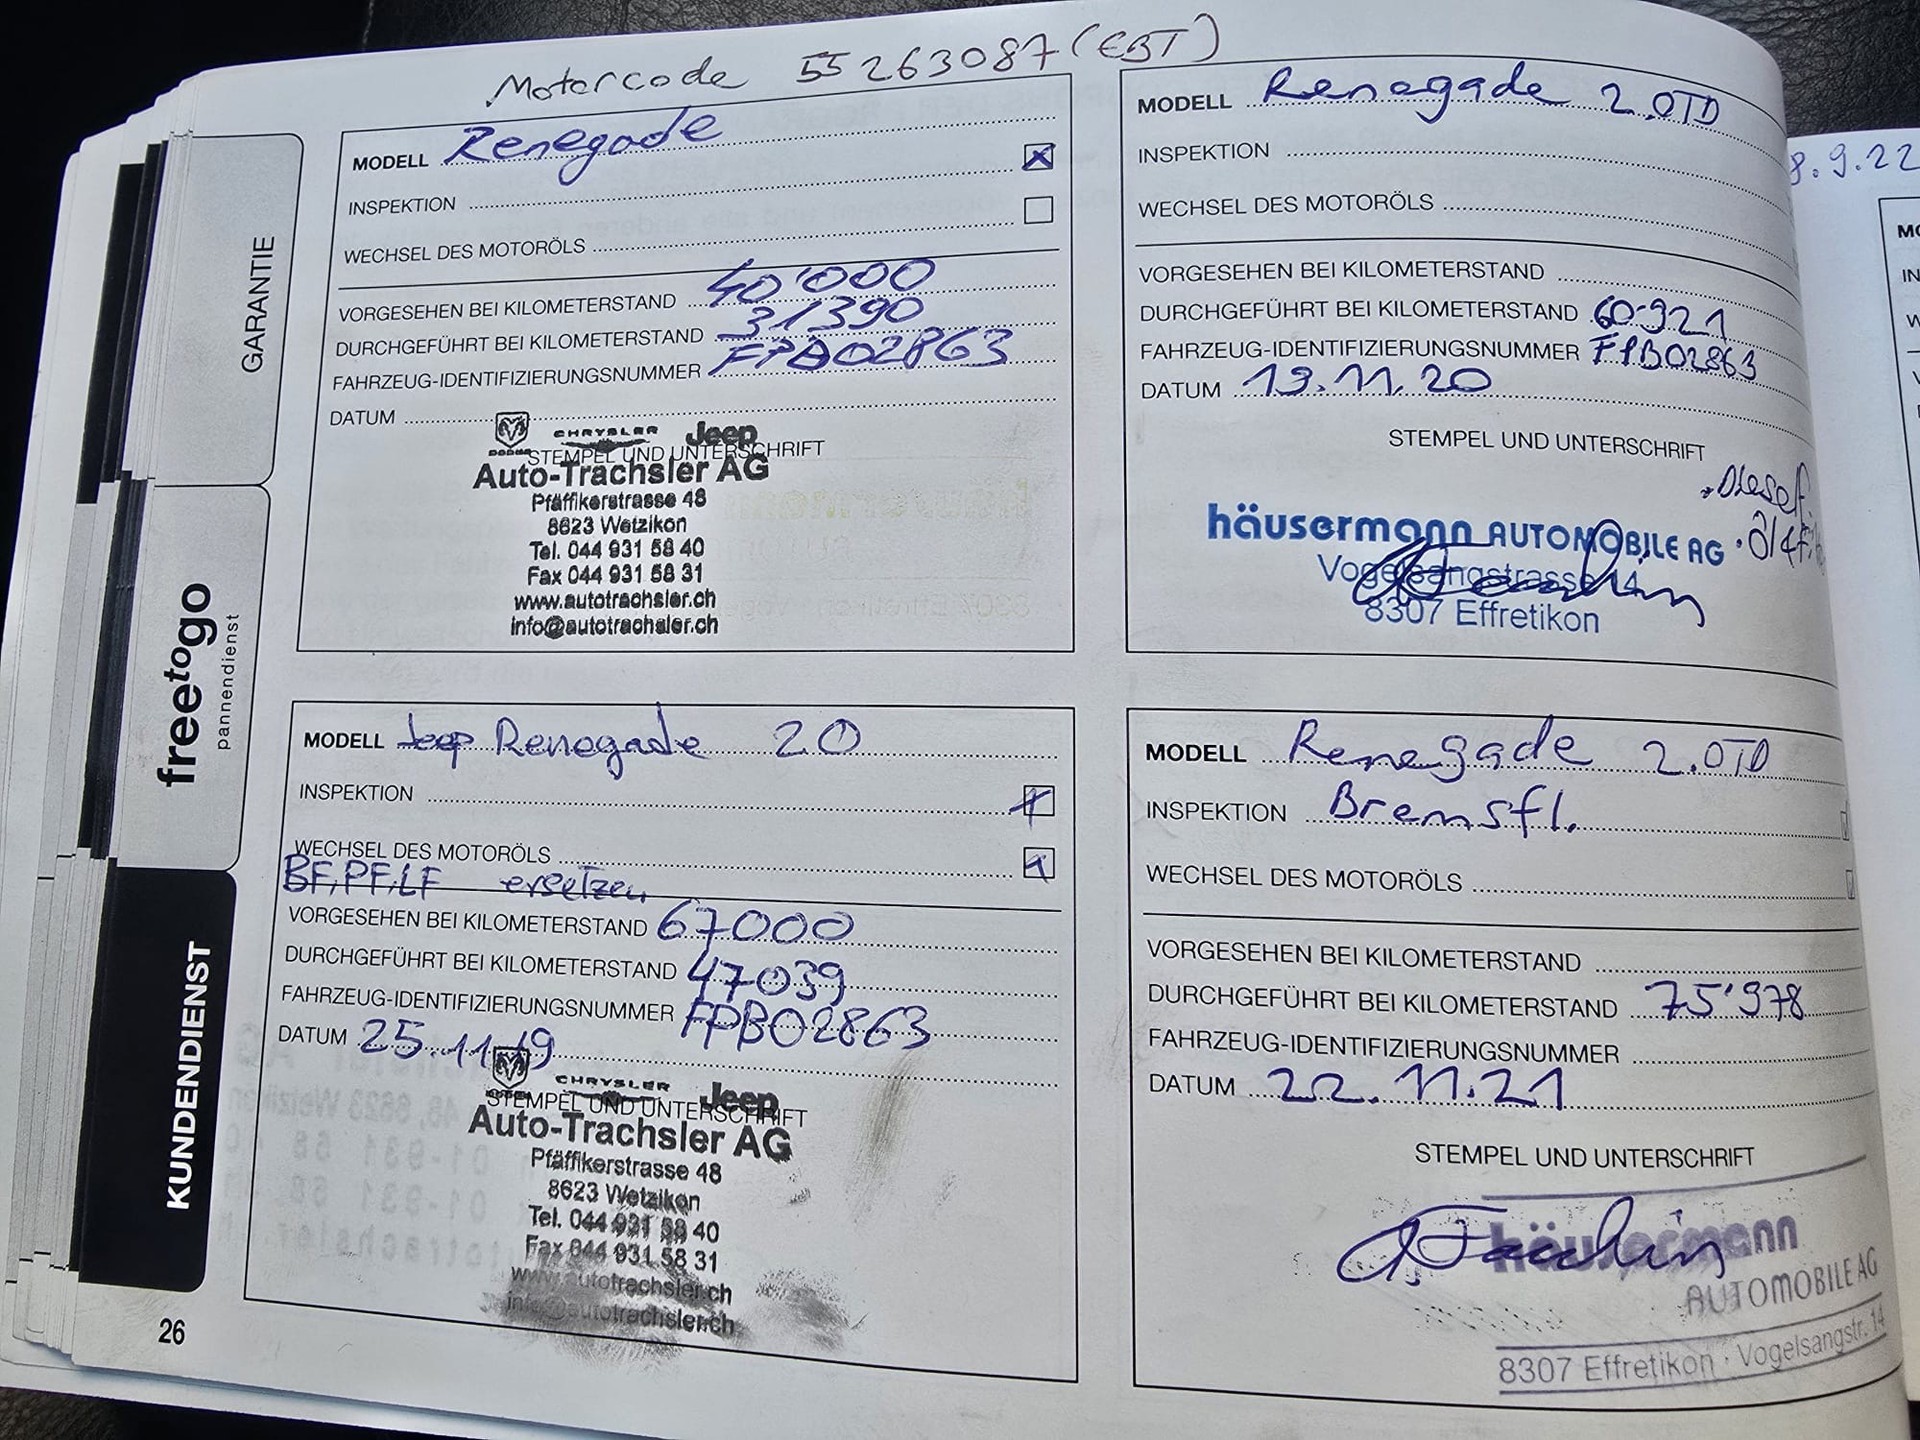 Motorcode 55263087 (EBT)
GARANTIE
freetogo
pannendienst
KUNDENDIENST
26
MODELL Renegade
INSPEKTION
WECHSEL DES MOTORÖLS
VORGESEHEN BEI KILOMETERSTAND 40'000
DURCHGEFÜHRT BEI KILOMETERSTAND 31390
FAHRZEUG-IDENTIFIZIERUNGSNUMMER FPB02863
DATUM
CHRYSLER Jeep
DODGE
STEMPEL UND UNTERSCHRIFT
Auto-Trachsler AG
Pfäffikerstrasse 48
8623 Wetzikon
Tel. 044 931 58 40
Fax 044 931 58 31
www.autotrachsler.ch
info@autotrachsler.ch
MODELL Renegade 2.0TD
INSPEKTION
WECHSEL DES MOTORÖLS
VORGESEHEN BEI KILOMETERSTAND
DURCHGEFÜHRT BEI KILOMETERSTAND 60'921
FAHRZEUG-IDENTIFIZIERUNGSNUMMER FPB02863
DATUM 19.11.20
STEMPEL UND UNTERSCHRIFT
häusermann AUTOMOBILE AG
Vogelsangstrasse 14
8307 Effretikon
MODELL Jeep Renegade 2.0
INSPEKTION
WECHSEL DES MOTORÖLS
BF, PF, LF ersetzen
VORGESEHEN BEI KILOMETERSTAND 67000
DURCHGEFÜHRT BEI KILOMETERSTAND 47039
FAHRZEUG-IDENTIFIZIERUNGSNUMMER FPB02863
DATUM 25.11.19
CHRYSLER Jeep
STEMPEL UND UNTERSCHRIFT
Auto-Trachsler AG
Pfäffikerstrasse 48
8623 Wetzikon
Tel. 044 931 58 40
Fax 044 931 58 31
www.autotrachsler.ch
info@autotrachsler.ch
MODELL Renegade 2.0TD
INSPEKTION Bremsfl.
WECHSEL DES MOTORÖLS
VORGESEHEN BEI KILOMETERSTAND
DURCHGEFÜHRT BEI KILOMETERSTAND 75'978
FAHRZEUG-IDENTIFIZIERUNGSNUMMER
DATUM 22.11.21
STEMPEL UND UNTERSCHRIFT
häusermann
AUTOMOBILE AG
8307 Effretikon · Vogelsangstr. 14
8.9.22